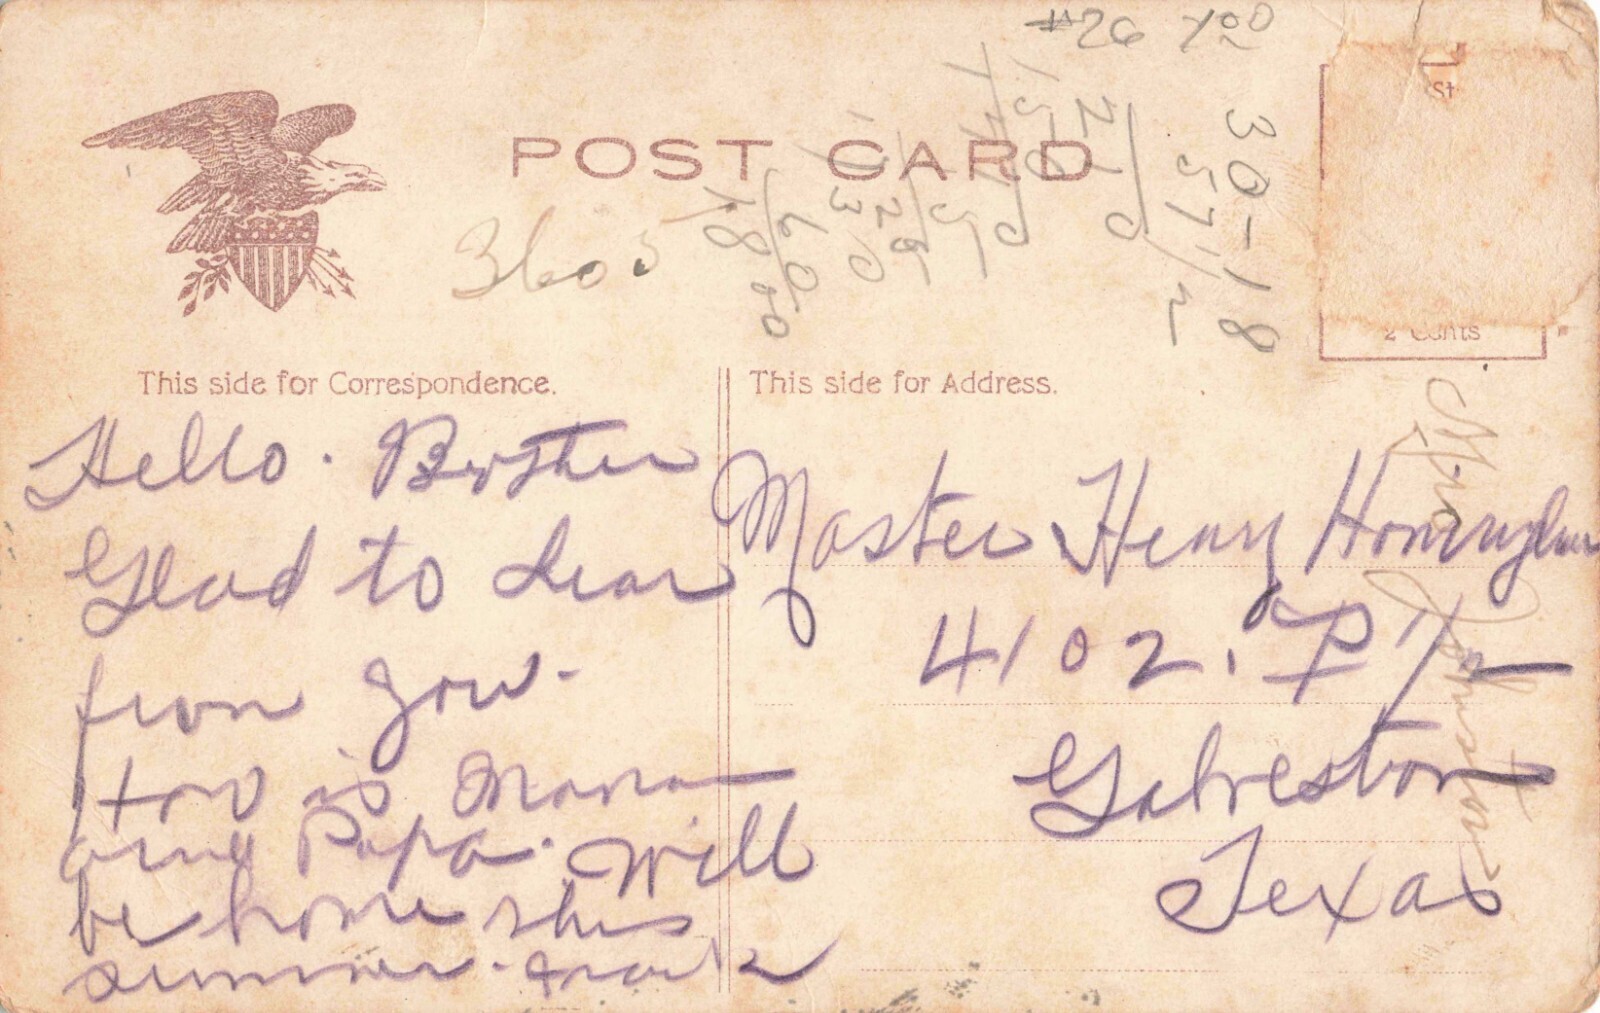 #26
30-18
57 1/2
POST CARD
3605
18 00
St
2 Cents
This side for Correspondence.
This side for Address.
Hello. Buster
Glad to hear
from you.
How is Mama
and Papa. Will
be home this
summer. Frank
Master Henry
4102. P 1/2
Galveston
Texas
Mrs Johnson